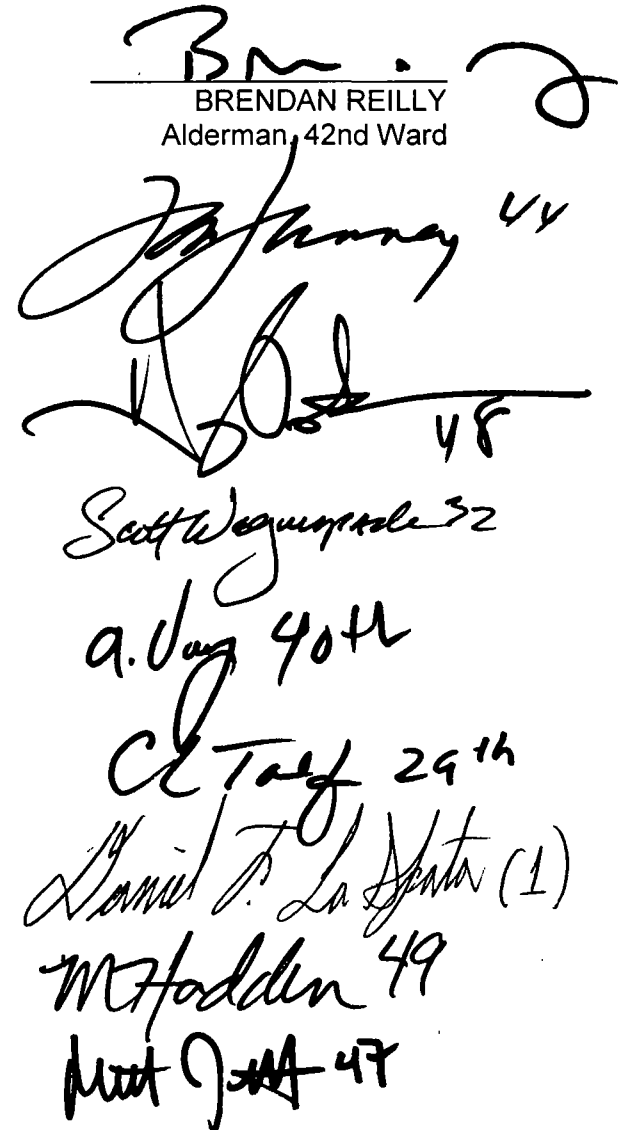 BRENDAN REILLY
Alderman, 42nd Ward
Tom Tunney 44
48
Scott Waguespack 32
A. Vasquez 40th
C Taliaferro 29th
Daniel J. La Spata (1)
M Hadden 49
Matt 47